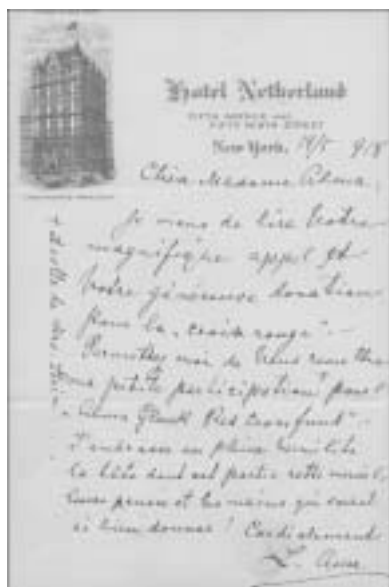 Hotel Netherland
FIFTH AVENUE AND
FIFTY NINTH STREET
New York, 18/5 918
Chère Madame Alma,
Je viens de lire Votre
magnifique appel et
Votre généreuse donation
pour la "croix rouge".
Permettez moi de Vous remettre
ma petite participation pour
"Alma Gluck Red Cross fund".
J'embrasse en pleine humilité
la tête dont est partie cette
pensée et les mains qui
si bien donner! Cordialement
L. Auer